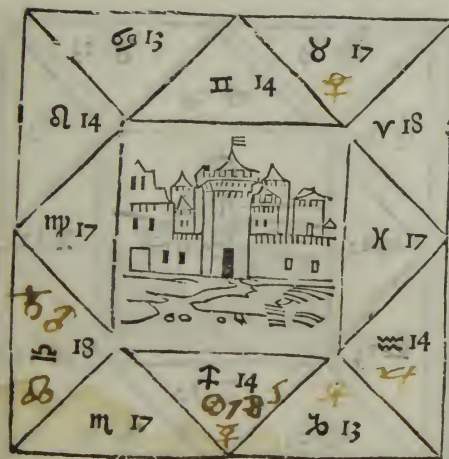 ♋ 13
♉ 17
♀
♊ 14
♌ 14
♈ 18
♍ 17
♓ 17
♄ ♂
♎ 18
☊
♒ 14
♐ 14
☉
☿
♏ 17
♑ 13